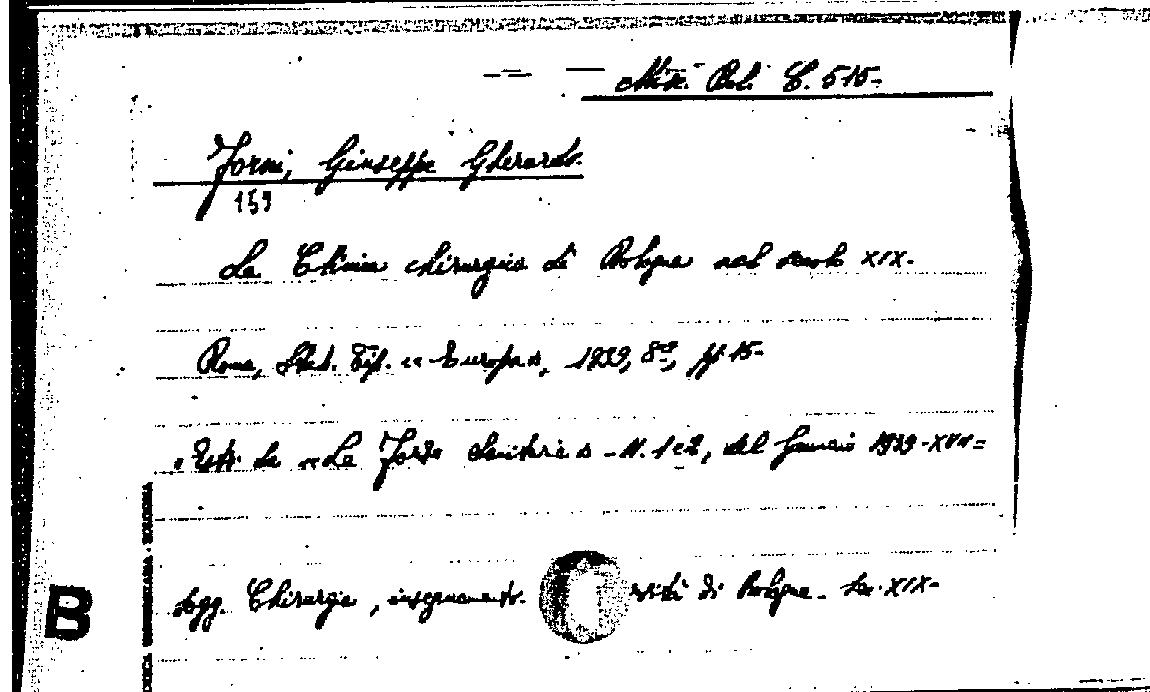 Misc. Bol. C. 515-
Forni, Giuseppe Gherardo.
159
La Clinica chirurgica di Bologna nel secolo XIX-
Roma, Stab. Tip. «Europa», 1939, 8º, pp. 15-
"Estr. da «La Forza Sanitaria» - N. 1 e 2, del Gennaio 1939-XVII=
Sogg. Chirurgia, insegnamento. rsità di Bologna - Sec. XIX-
B